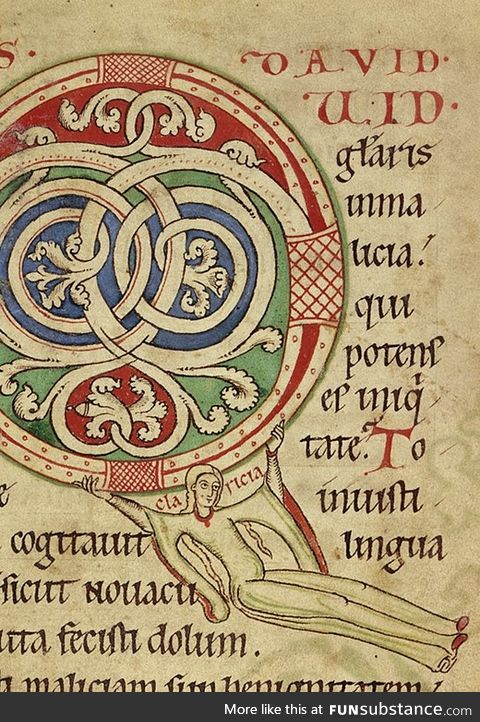 S· DAVID·
U·ID·
gl̃aris
inma
licia.
qui
potens
es iniq̃
tate. To
e iniusti
cla ricia
cogitauit lingua
sicut nouacu
uta fecisti dolum.
maliciam sup benignitatem
More like this at FUNsubstance.com